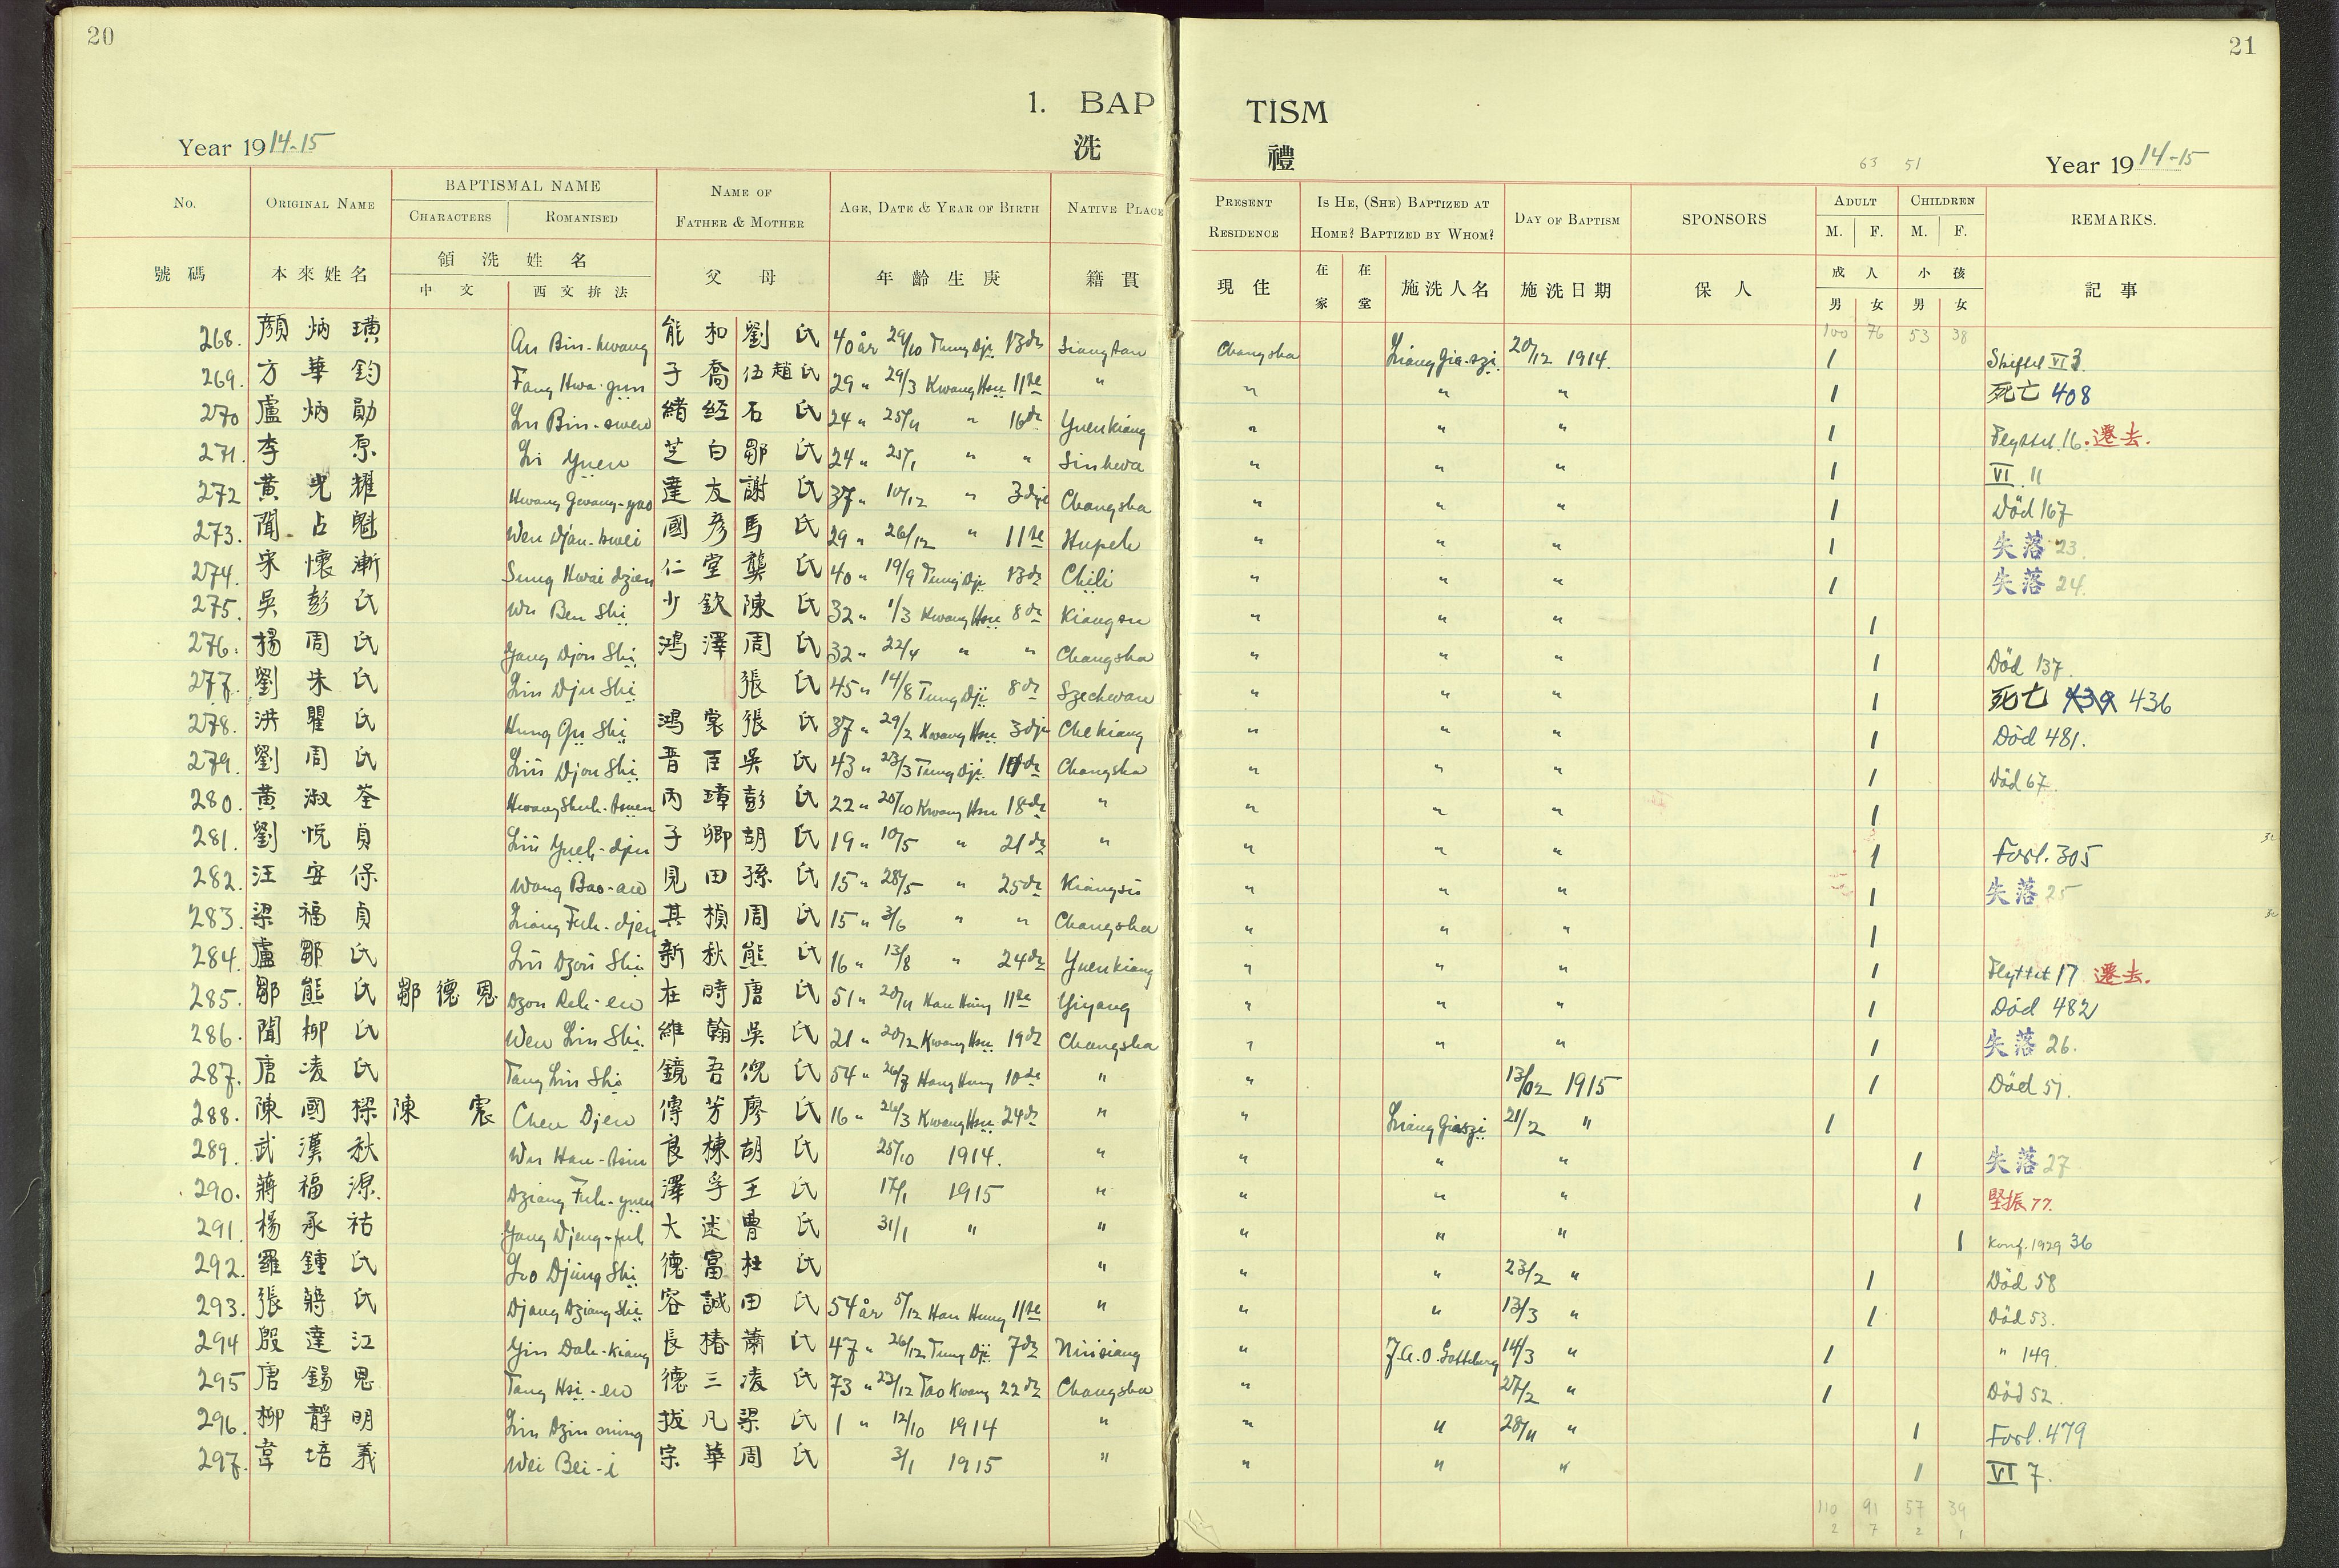 20
21
1. BAPTISM
洗 禮
Year 1914-15
63 51
Year 1914-15
No. ORIGINAL NAME BAPTISMAL NAME CHARACTERS ROMANISED NAME OF FATHER & MOTHER AGE, DATE & YEAR OF BIRTH NATIVE PLACE PRESENT RESIDENCE IS HE, (SHE) BAPTIZED AT HOME? BAPTIZED BY WHOM? DAY OF BAPTISM SPONSORS ADULT M. F. CHILDREN M. F. REMARKS.
號碼 本來姓名 領洗姓名 中文 西文拚法 父母 年齡生庚 籍貫 現住 在家 在堂 施洗人名 施洗日期 保人 成人 男 女 小孩 男 女 記事
100 76 53 38
268. 顏炳璜 An Bin-hwang 能和 劉氏 40 år 29/10 Tung Dji 13de Siangtan Changsha Liang Gia-szi 20/12 1914. 1 Skiftet VI 3.
269. 方華鈞 Fang Hwa-gün 子喬 伍趙氏 29 " 29/3 Kwang Hsü 11te " " " " 1 死亡 408
270 盧炳勛 Lu Bin- 緒经 石氏 24 " 25/11 " 16de Yuenkiang " " " 1 Flyttet. 16. 遷去.
271. 李原 Li Yuen 芝白 鄒氏 24 " 25/1 " " Sinhwa " " " 1 VI 11
272 黃光耀 Hwang Gwang-yao 達友 謝氏 37 " 10/12 " 3dje Changsha " " " 1 Död 167
273. 聞占魁 Wen Djan-kwei 國彥 馬氏 29 " 26/12 " 11te Hupeh " " " 1 失落 23.
274. 宋懷漸 Sung Hwai dzien 仁堂 龔氏 40 " 19/9 Tung Dji 13de Chili " " " 1 失落 24.
275. 吳彭氏 Wu Ben Shi 少欽 陳氏 32 " 1/3 Kwang Hsü 8de Kiangsu " " " 1
276. 楊周氏 Yang Djou Shi 鴻澤 周氏 32 " 22/4 " " Changsha " " " 1 Död 137.
277. 劉朱氏 Liu Dju Shi 張氏 45 " 14/8 Tung Dji 8de Szechwan " " " 1 死亡 439 436
278. 洪瞿氏 Hung Gü Shi 鴻裳 張氏 37 " 29/2 Kwang Hsü 3dje Chekiang " " " 1 Död 481.
279. 劉周氏 Liu Djou Shi 晋臣 吳氏 43 " 23/3 Tung Dji 10de Changsha " " " 1 Död 67.
280. 黃淑荃 Hwang Shuh-tsuen 丙璋 彭氏 22 " 20/10 Kwang Hsü 18de " " " " 1
281. 劉悦貞 Liu Yueh-djen 子卿 胡氏 19 " 10/5 " 21de " " " " 1 Forl. 305
282. 汪安保 Wang Bao-an 見田 孫氏 15 " 28/5 " 25de Kiangsi " " " 1 失落 25
283. 梁福貞 Liang Fuh-djen 其楨 周氏 15 " 3/6 " " Changsha " " " 1
284. 盧鄒氏 Lu Dzou Shi 新秋 熊氏 16 " 13/8 " 24de Yuenkiang " " " 1 Flyttet 17 遷去.
285. 鄒熊氏 鄒德恩 Dzou Deh-en 在時 唐氏 51 " 20/11 Han Hung 11te Yiyang " " " 1 Död 482
286. 聞柳氏 Wen Liu Shi. 維翰 吳氏 21 " 20/2 Kwang Hsü 19de Changsha " " " 1 失落 26.
287. 唐凌氏 Tang Lin Shi 鏡吾 倪氏 54 " 26/7 Hang Hung 10de " " 13/02 1915 1 Död 51.
288. 陳國樑 陳震 Chen Djen 傳芳 廖氏 16 " 26/3 Kwang Hsü 24de " " Liang Giaszi 21/2 " 1
289. 武漢秋 Wu Han-tsiu 良棟 胡氏 25/10 1914. " " " " 1 失落 27
290. 蔣福源 Dziang Fuh-yuen 澤孚 王氏 17/1 1915 " " " " 1 堅振 77.
291. 楊承祜 Yang Djeng-fuh 大述 曹氏 31/1 " " " " " 1 Konf. 1929 36
292. 羅鍾氏 Lo Djung Shi 德富 杜氏 " " " 23/2 " 1 Död 58
293. 張蔣氏 Djang Dziang Shi 容誠 田氏 54 år 5/12 Han Hung 11te " " " 13/3 " 1 Död 53.
294 殷達江 Yin Dah-kiang 長椿 蕭氏 47 " 26/12 Tung Dji 7de Ninsiang " J.A.O. Gotteberg 14/3 " 1 " 149.
295 唐錫恩 Tang Hsi-en 德三 凌氏 73 " 23/12 Tao Kwang 22de Changsha " 27/2 " 1 Död 52.
296. 柳靜明 Liu Dzin ming 拔凡 梁氏 1 " 12/10 1914 " " " 28/11 " 1 Forl. 479
297. 韋培義 Wei Bei-i 宗華 周氏 3/1 1915 " " " " 1 VI 7.
110 91 57 39
2 7 2 1